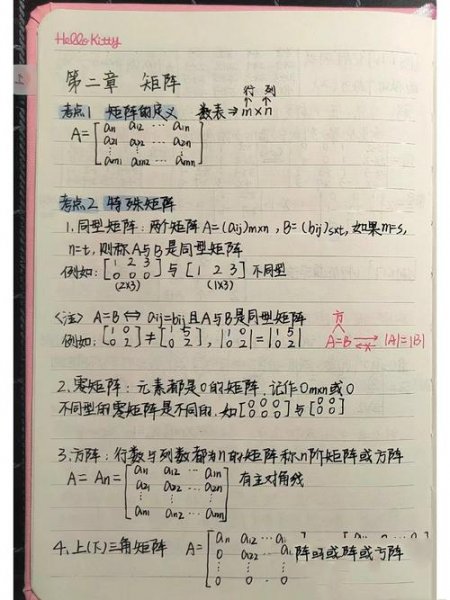 Hello Kitty
上
第二章 矩阵
行 列
考点1 矩阵的定义 数表⇒m×n
A=[a11 a12 ⋯ a1n
a21 a22 ⋯ a2n
⋮ ⋮ ⋮
am1 am2 ⋯ amn]
考点2 特殊矩阵
1.同型矩阵:两个矩阵A=(aij)m×n,B=(bij)s×t,如果m=s,
n=t,则称A与B是同型矩阵
例如:[1 2 3
0 0 0]与[1 2 3]不同型
(2×3) (1×3)
<注> A=B⇔aij=bij且A与B是同型矩阵
例如:[1 0
0 2]≠[1 5
0 2],|1 0
0 2|=|1 5
0 2|
方
A=B ⇄ |A|=|B|
2.零矩阵:元素都是0的矩阵,记作0m×n或0
不同型的零矩阵是不同的,如[0 0 0
0 0 0]与[0 0
0 0]
3.方阵:行数与列数都为n的矩阵称n阶矩阵或方阵
A=An=[a11 a12 ⋯ a1n
a21 a22 ⋯ a2n
⋮
an1 an2 ⋯ ann] 有主对角线
4.上(下)三角矩阵 A=[a11 a12 ⋯
0 a22 ⋯
⋮ ⋮
0 0 0]
阵或方阵